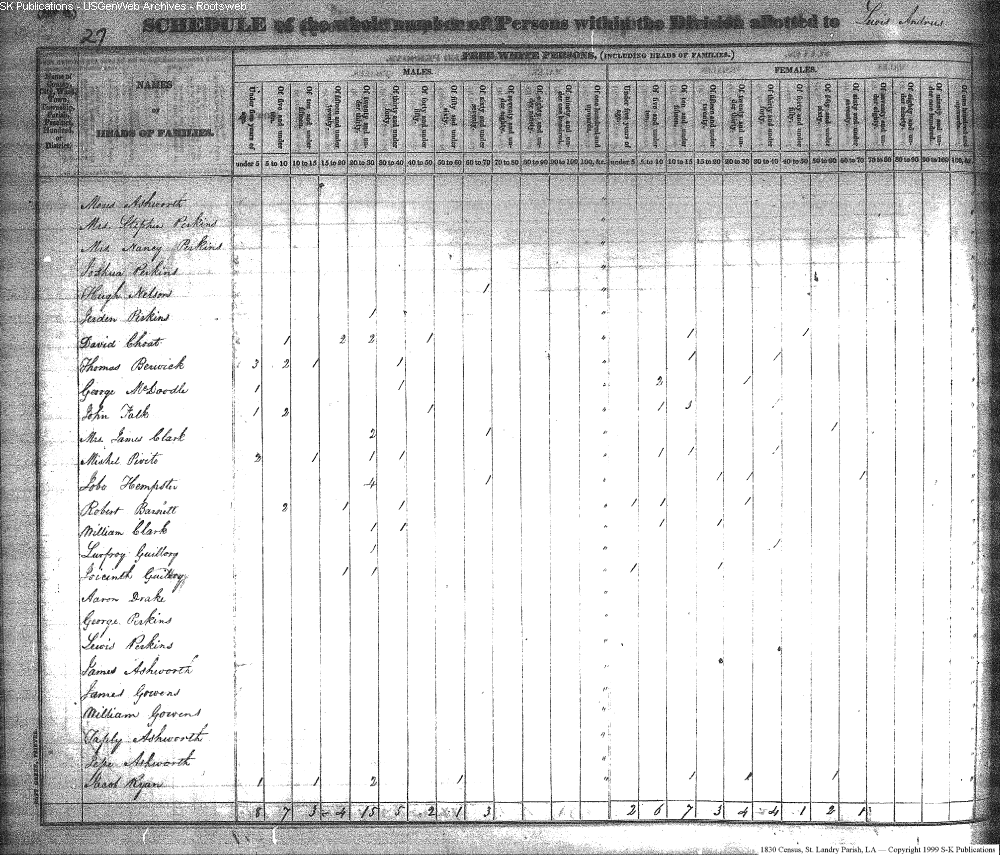 SK Publications - USGenWeb Archives - Rootsweb
27
SCHEDULE of the whole number of Persons within the Division allotted to Lewis Andrus
FREE WHITE PERSONS, (INCLUDING HEADS OF FAMILIES.)
NAMES OF HEADS OF FAMILIES.
MALES. FEMALES.
under 5 5 to 10 10 to 15 15 to 20 20 to 30 30 to 40 40 to 50 50 to 60 60 to 70 70 to 80 80 to 90 90 to 100 100, &c. under 5 5 to 10 10 to 15 15 to 20 20 to 30 30 to 40 40 to 50 50 to 60 60 to 70 70 to 80 80 to 90 90 to 100 100, &c.
Moses Ashworth
Mrs. Stephen Perkins
Mrs. Nancy Perkins
Joshua Perkins
Hugh Nelson 1
Jerden Perkins 1
David Choat 1 2 2 1 1 1
Thomas Berwick 3 2 1 1 1 1
George McDoodle 1 1 2 1
John Falk 1 2 1 1 3
Mrs James Clark 2 1 1
Mishel Pivito 3 1 1 1 1 1 1
Jobe Hempster 4 1 1 1 1
Robert Barnett 2 1 1 1 1 1
William Clark 1 1 1 1
Guillory 1 1
Guillory 1 1 1 1
Aaron Drake
George Perkins
Lewis Perkins
James Ashworth
James Gowens
William Gowens
Taply Ashworth
Ashworth
Jacob Ryan 1 1 2 1 1 1 1
8 7 3 4 15 5 2 1 3 2 6 7 3 4 4 1 2 1
1830 Census, St. Landry Parish, LA — Copyright 1999 S-K Publications